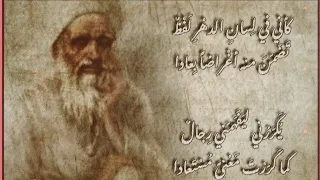 كأنّي في لسانِ الدهرِ لَفْظٌ
تَضَمّنَ منه أغْراضاً بِعادا
يُكَرّرُني لِيَفْهَمَني رِجالٌ
كما كَرّرْتَ مَعْنىً مُسْتَعادا